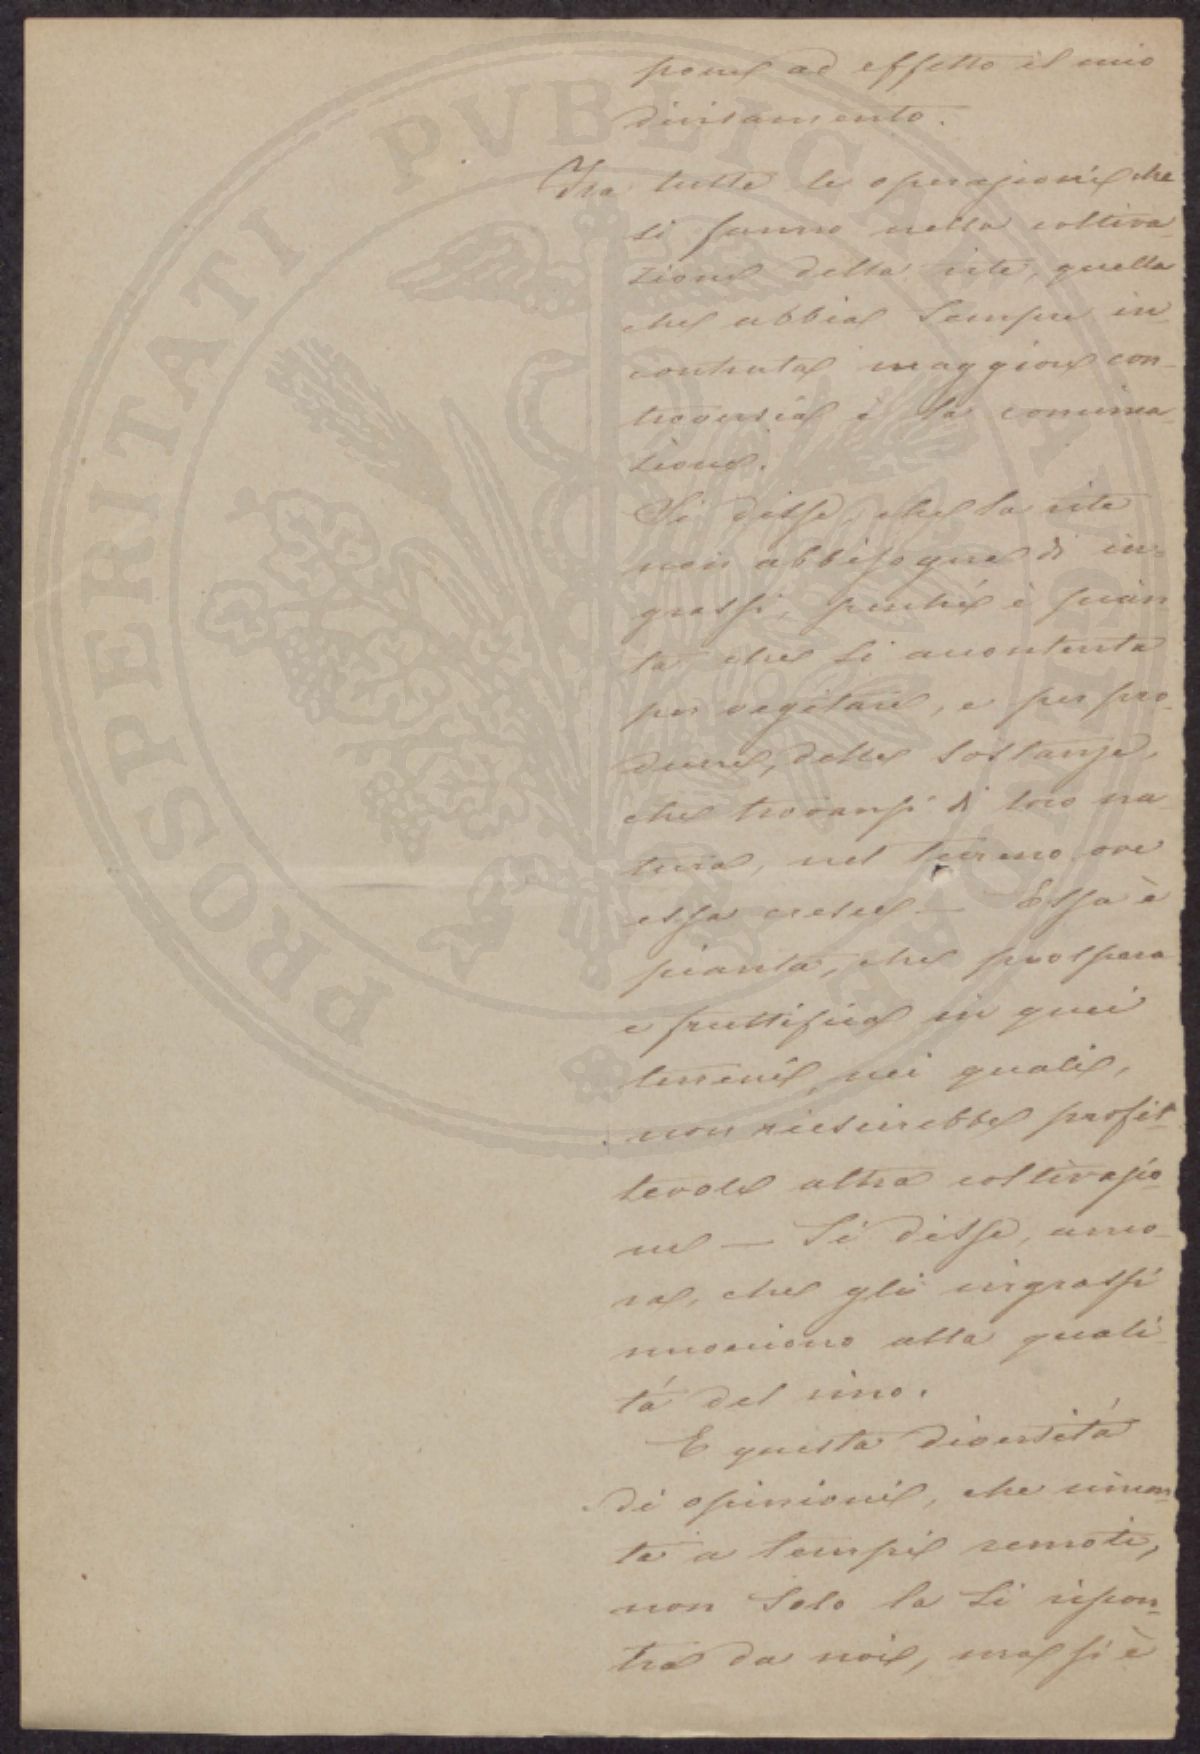 porre ad effetto il mio
divisamento.
Tra tutte le operazioni che
si fanno nella coltiva-
zione della vite, quella
che abbia sempre in-
contrata maggiore con-
troversia è la concima-
zione.
Si disse, che la vite
non abbisogna di in-
grassi, perché è pian
ta che si accontenta
per vegetare, e per pro-
durre, delle sostanze,
che trovansi di loro na
tura, nel terreno ove
essa cresce — Essa è
pianta, che prospera
e fruttifica in quei
terreni, nei quali,
non riescirebbe profit-
tevole altra coltivazio-
ne — Si disse, anco-
ra, che gli ingrassi
nuociono alla quali-
tá del vino.
E questa diversitá
di opinioni, che rimon-
ta a tempi remoti,
non solo la si riscon-
tra da noi, ma si è
PROSPERITATI PVBLICAE